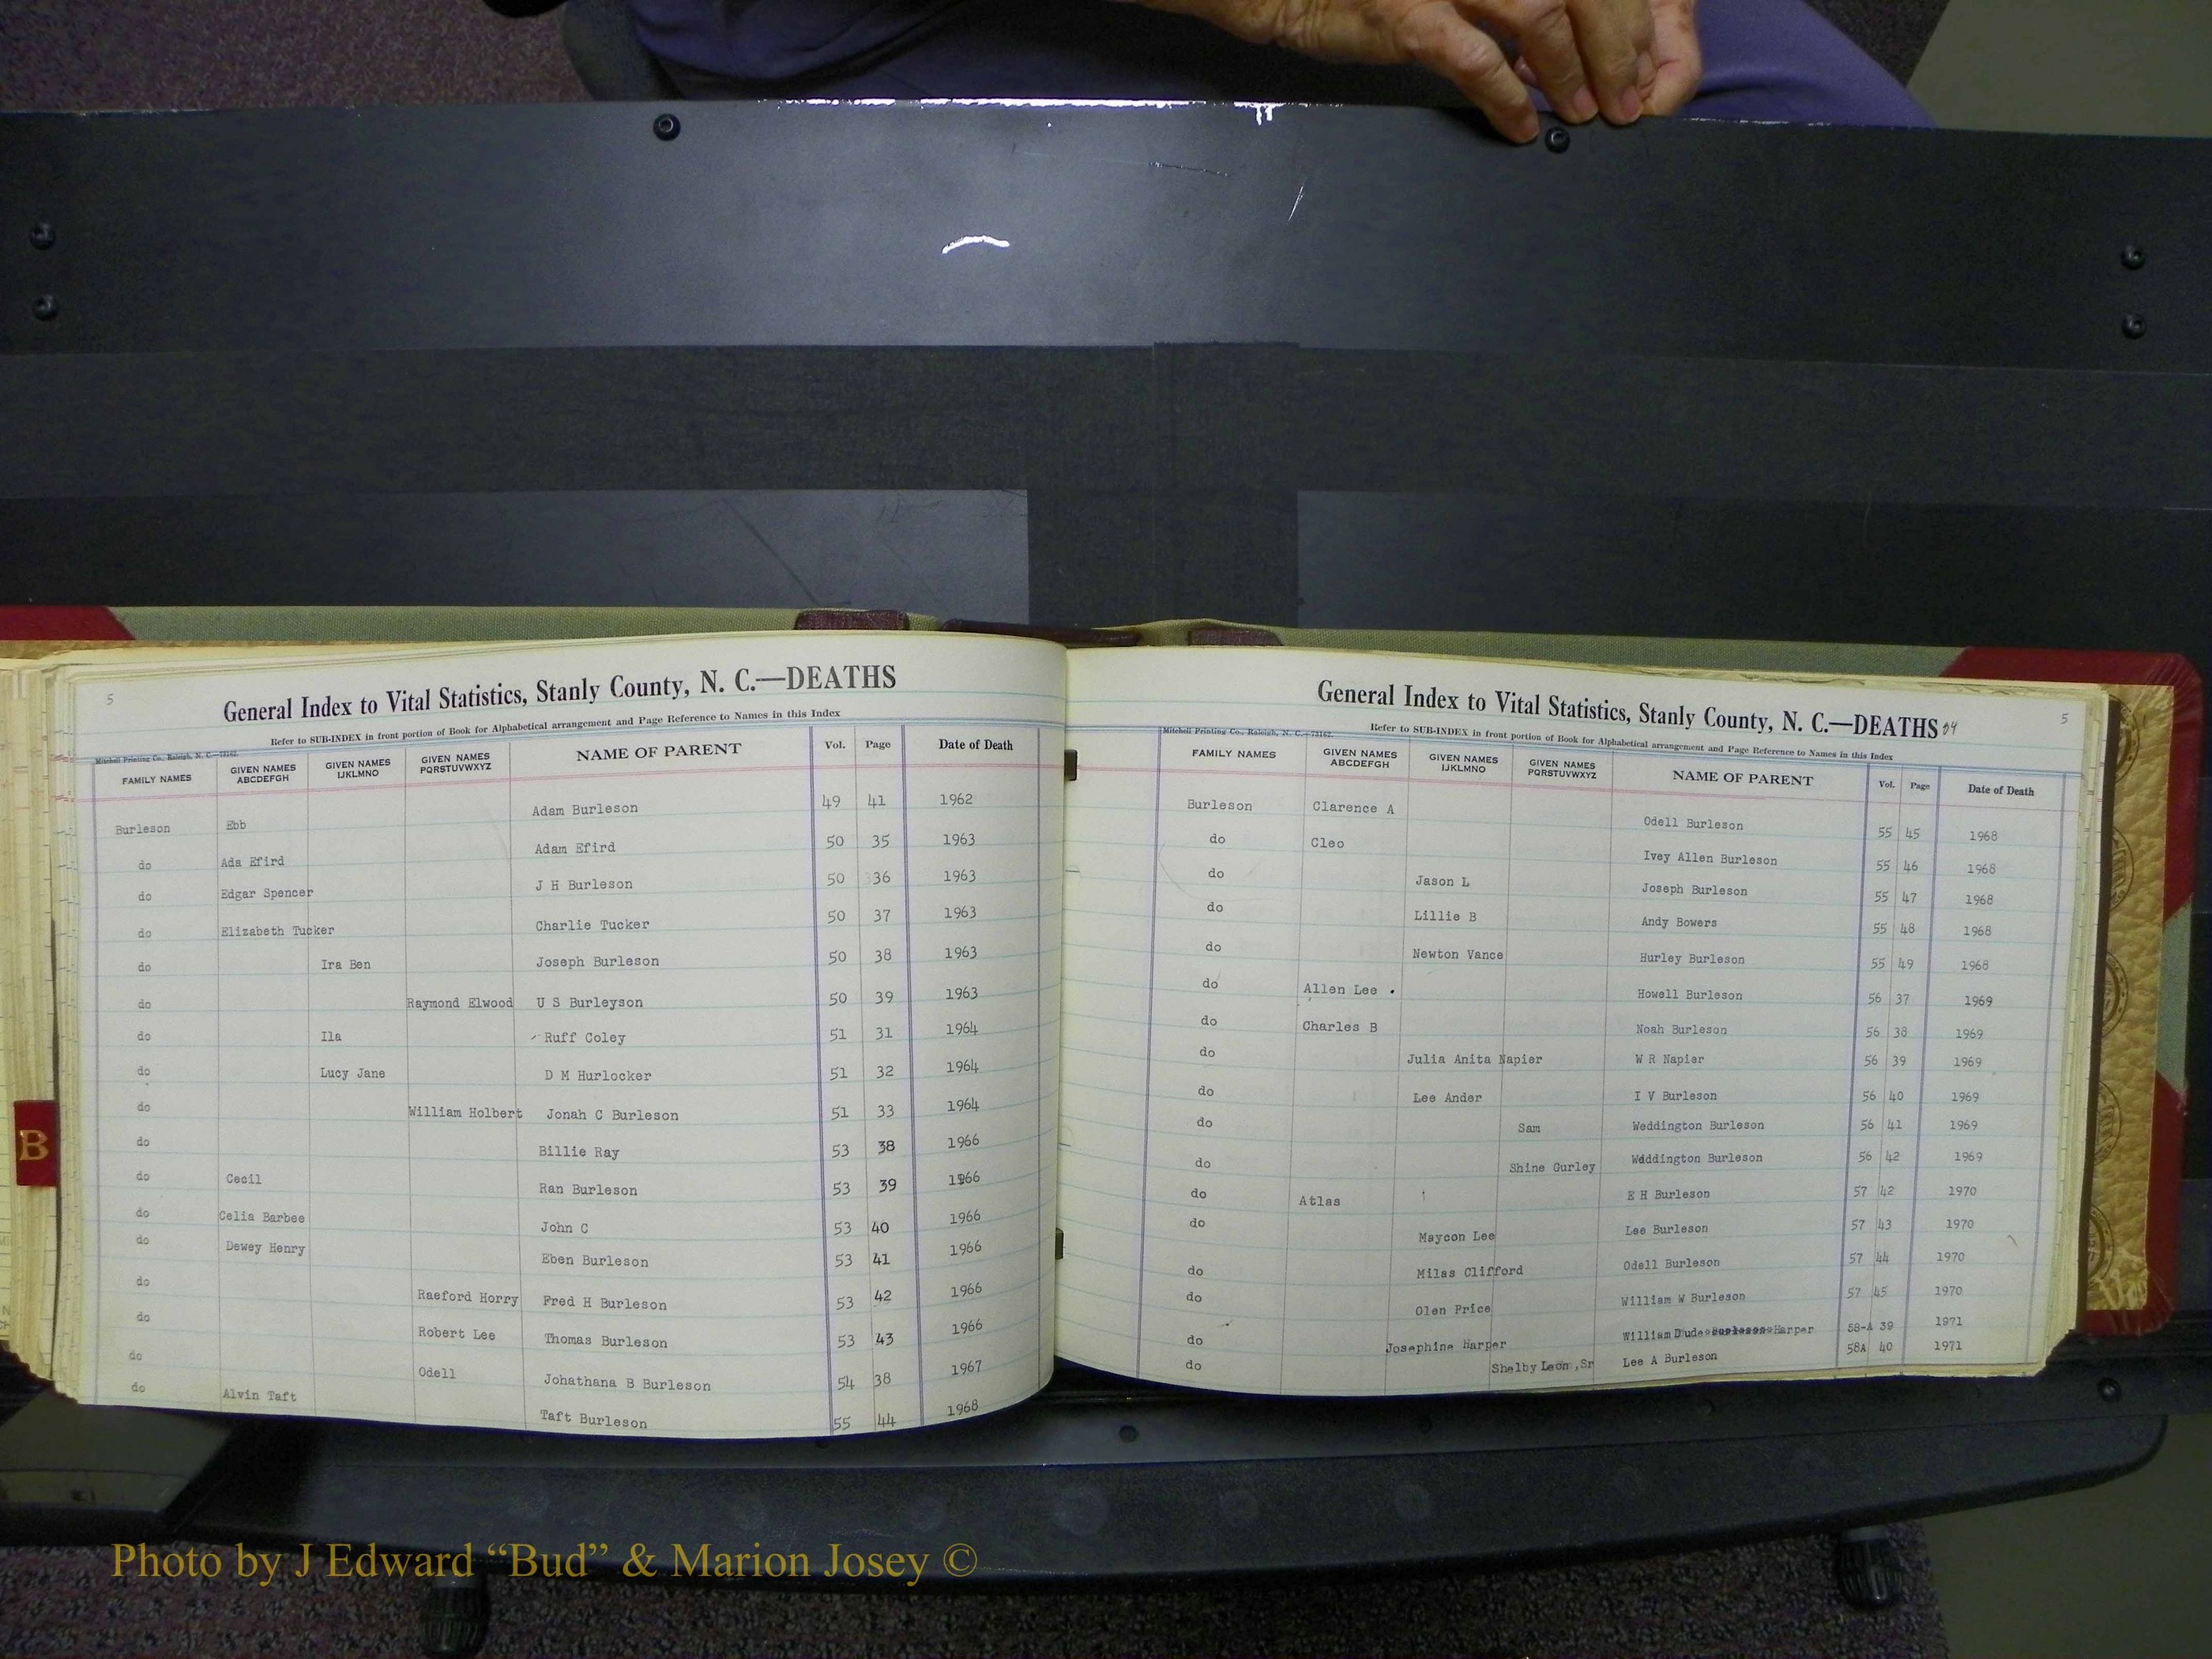 5
General Index to Vital Statistics, Stanly County, N. C.—DEATHS
Refer to SUB-INDEX in front portion of Book for Alphabetical arrangement and Page Reference to Names in this Index
Mitchell Printing Co., Raleigh, N. C.—73162.
FAMILY NAMES GIVEN NAMES ABCDEFGH GIVEN NAMES IJKLMNO GIVEN NAMES PQRSTUVWXYZ NAME OF PARENT Vol. Page Date of Death
Burleson Ebb Adam Burleson 49 41 1962
do Ada Efird Adam Efird 50 35 1963
do Edgar Spencer J H Burleson 50 36 1963
do Elizabeth Tucker Charlie Tucker 50 37 1963
do Ira Ben Joseph Burleson 50 38 1963
do Raymond Elwood U S Burleyson 50 39 1963
do Ila Ruff Coley 51 31 1964
do Lucy Jane D M Hurlocker 51 32 1964
do William Holbert Jonah C Burleson 51 33 1964
do Billie Ray 53 38 1966
do Cecil Ran Burleson 53 39 1966
do Celia Barbee John C 53 40 1966
do Dewey Henry Eben Burleson 53 41 1966
do Raeford Horry Fred H Burleson 53 42 1966
do Robert Lee Thomas Burleson 53 43 1966
do Odell Johathana B Burleson 54 38 1967
do Alvin Taft Taft Burleson 55 44 1968
B
General Index to Vital Statistics, Stanly County, N. C.—DEATHS 5
Refer to SUB-INDEX in front portion of Book for Alphabetical arrangement and Page Reference to Names in this Index
Mitchell Printing Co., Raleigh, N. C.—73162.
FAMILY NAMES GIVEN NAMES ABCDEFGH GIVEN NAMES IJKLMNO GIVEN NAMES PQRSTUVWXYZ NAME OF PARENT Vol. Page Date of Death
Burleson Clarence A Odell Burleson 55 45 1968
do Cleo Ivey Allen Burleson 55 46 1968
do Jason L Joseph Burleson 55 47 1968
do Lillie B Andy Bowers 55 48 1968
do Newton Vance Hurley Burleson 55 49 1968
do Allen Lee . Howell Burleson 56 37 1969
do Charles B Noah Burleson 56 38 1969
do Julia Anita Napier W R Napier 56 39 1969
do Lee Ander I V Burleson 56 40 1969
do Sam Weddington Burleson 56 41 1969
do Shine Gurley Weddington Burleson 56 42 1969
do Atlas E H Burleson 57 42 1970
do Maycon Lee Lee Burleson 57 43 1970
do Milas Clifford Odell Burleson 57 44 1970
do Olen Price William W Burleson 57 45 1970
do Josephine Harper William Dude Harper 58-A 39 1971
do Shelby Leon,Sr Lee A Burleson 58A 40 1971
Photo by J Edward “Bud” & Marion Josey ©